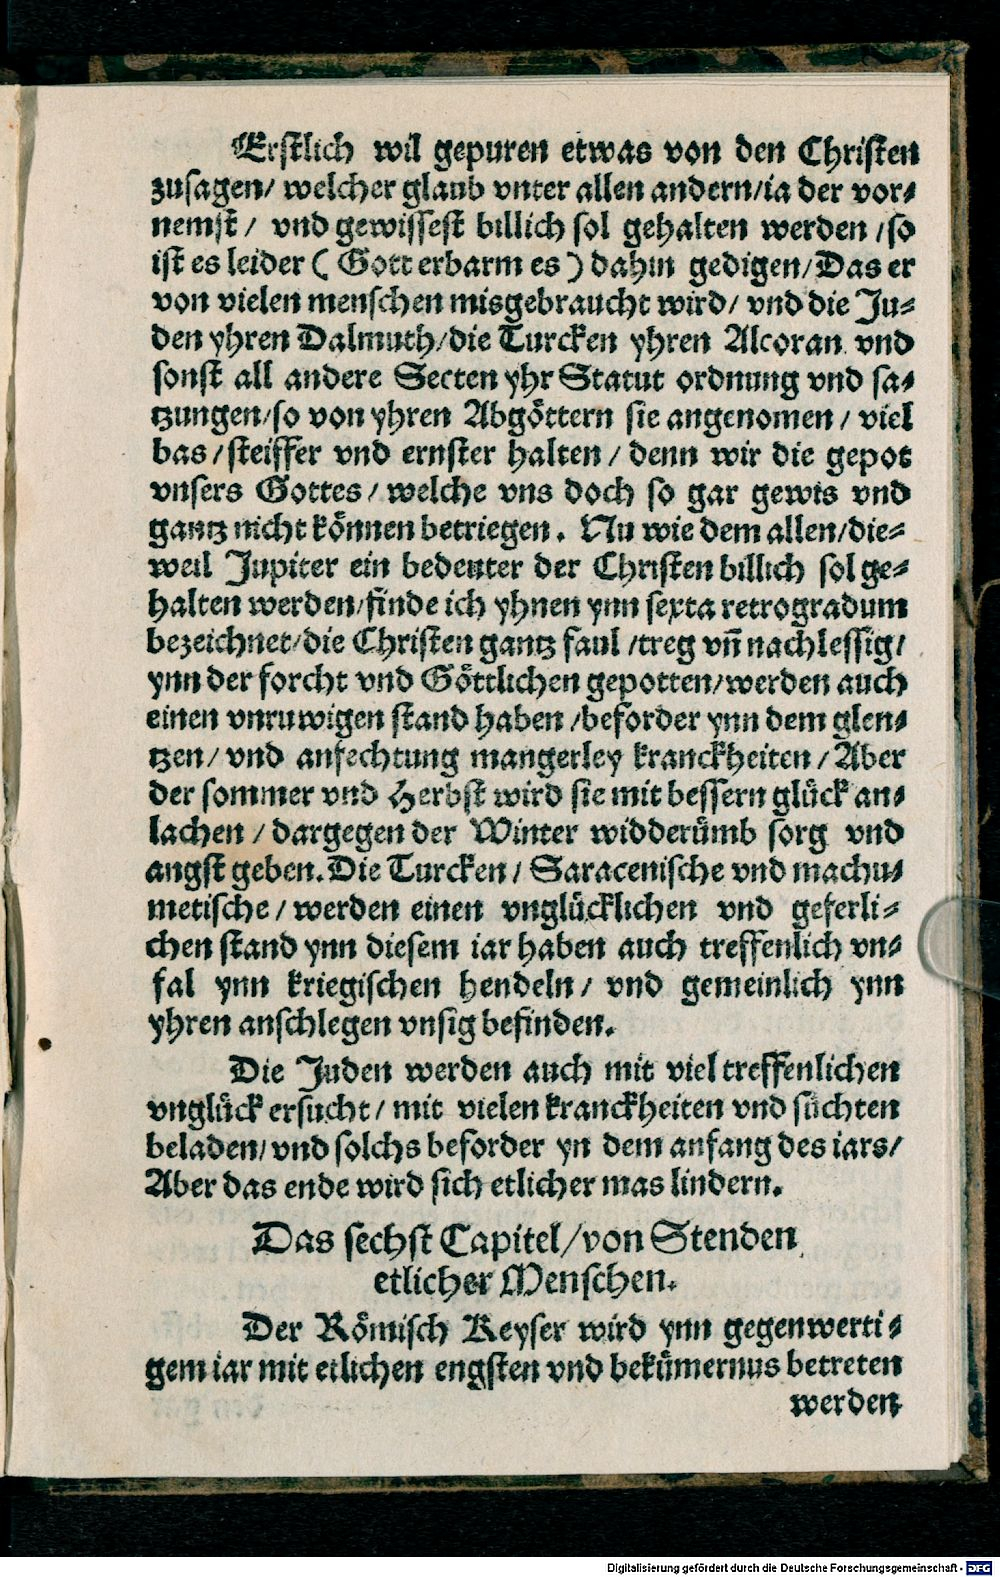 Erstlich wil gepuren etwas von den Christen
zusagen/ welcher glaub vnter allen andern/ia der vor⸗
nemst/ vnd gewissest billich sol gehalten werden/so
ist es leider (Gott erbarm es) dahin gedigen/Das er
von vielen menschen misgebraucht wird/ vnd die Ju⸗
den yhren Dalmuth/die Turcken yhren Alcoran vnd
sonst all andere Secten yhr Statut ordnung vnd sa⸗
tzungen/so von yhren Abgöttern sie angenomen/ viel
bas/steiffer vnd ernster halten/ denn wir die gepot
vnsers Gottes/welche vns doch so gar gewis vnd
gantz nicht können betriegen. Nu wie dem allen/die⸗
weil Jupiter ein bedeuter der Christen billich sol ge⸗
halten werden/finde ich yhnen ynn sexta retrogradum
bezeichnet/die Christen gantz faul/treg vñ nachlessig/
ynn der forcht vnd Göttlichen gepotten/werden auch
einen vnruwigen stand haben/beforder ynn dem glen⸗
tzen/ vnd anfechtung mangerley kranckheiten/Aber
der sommer vnd Herbst wird sie mit bessern glück an⸗
lachen/dargegen der Winter widderümb sorg vnd
angst geben. Die Turcken/ Saracenische vnd machu⸗
metische/werden einen vnglücklichen vnd geferli⸗
chen stand ynn diesem iar haben auch treffenlich vn⸗
fal ynn kriegischen hendeln/ vnd gemeinlich ynn
yhren anschlegen vnsig befinden.
Die Juden werden auch mit viel treffenlichen
vnglück ersucht/ mit vielen kranckheiten vnd süchten
beladen/vnd solchs beforder yn dem anfang des iars/
Aber das ende wird sich etlicher mas lindern.
Das sechst Capitel/von Stenden
etlicher Menschen.
Der Römisch Keyser wird ynn gegenwerti⸗
gem iar mit etlichen engsten vnd bekümernus betreten
werden
Digitalisierung gefördert durch die Deutsche Forschungsgemeinschaft - DFG